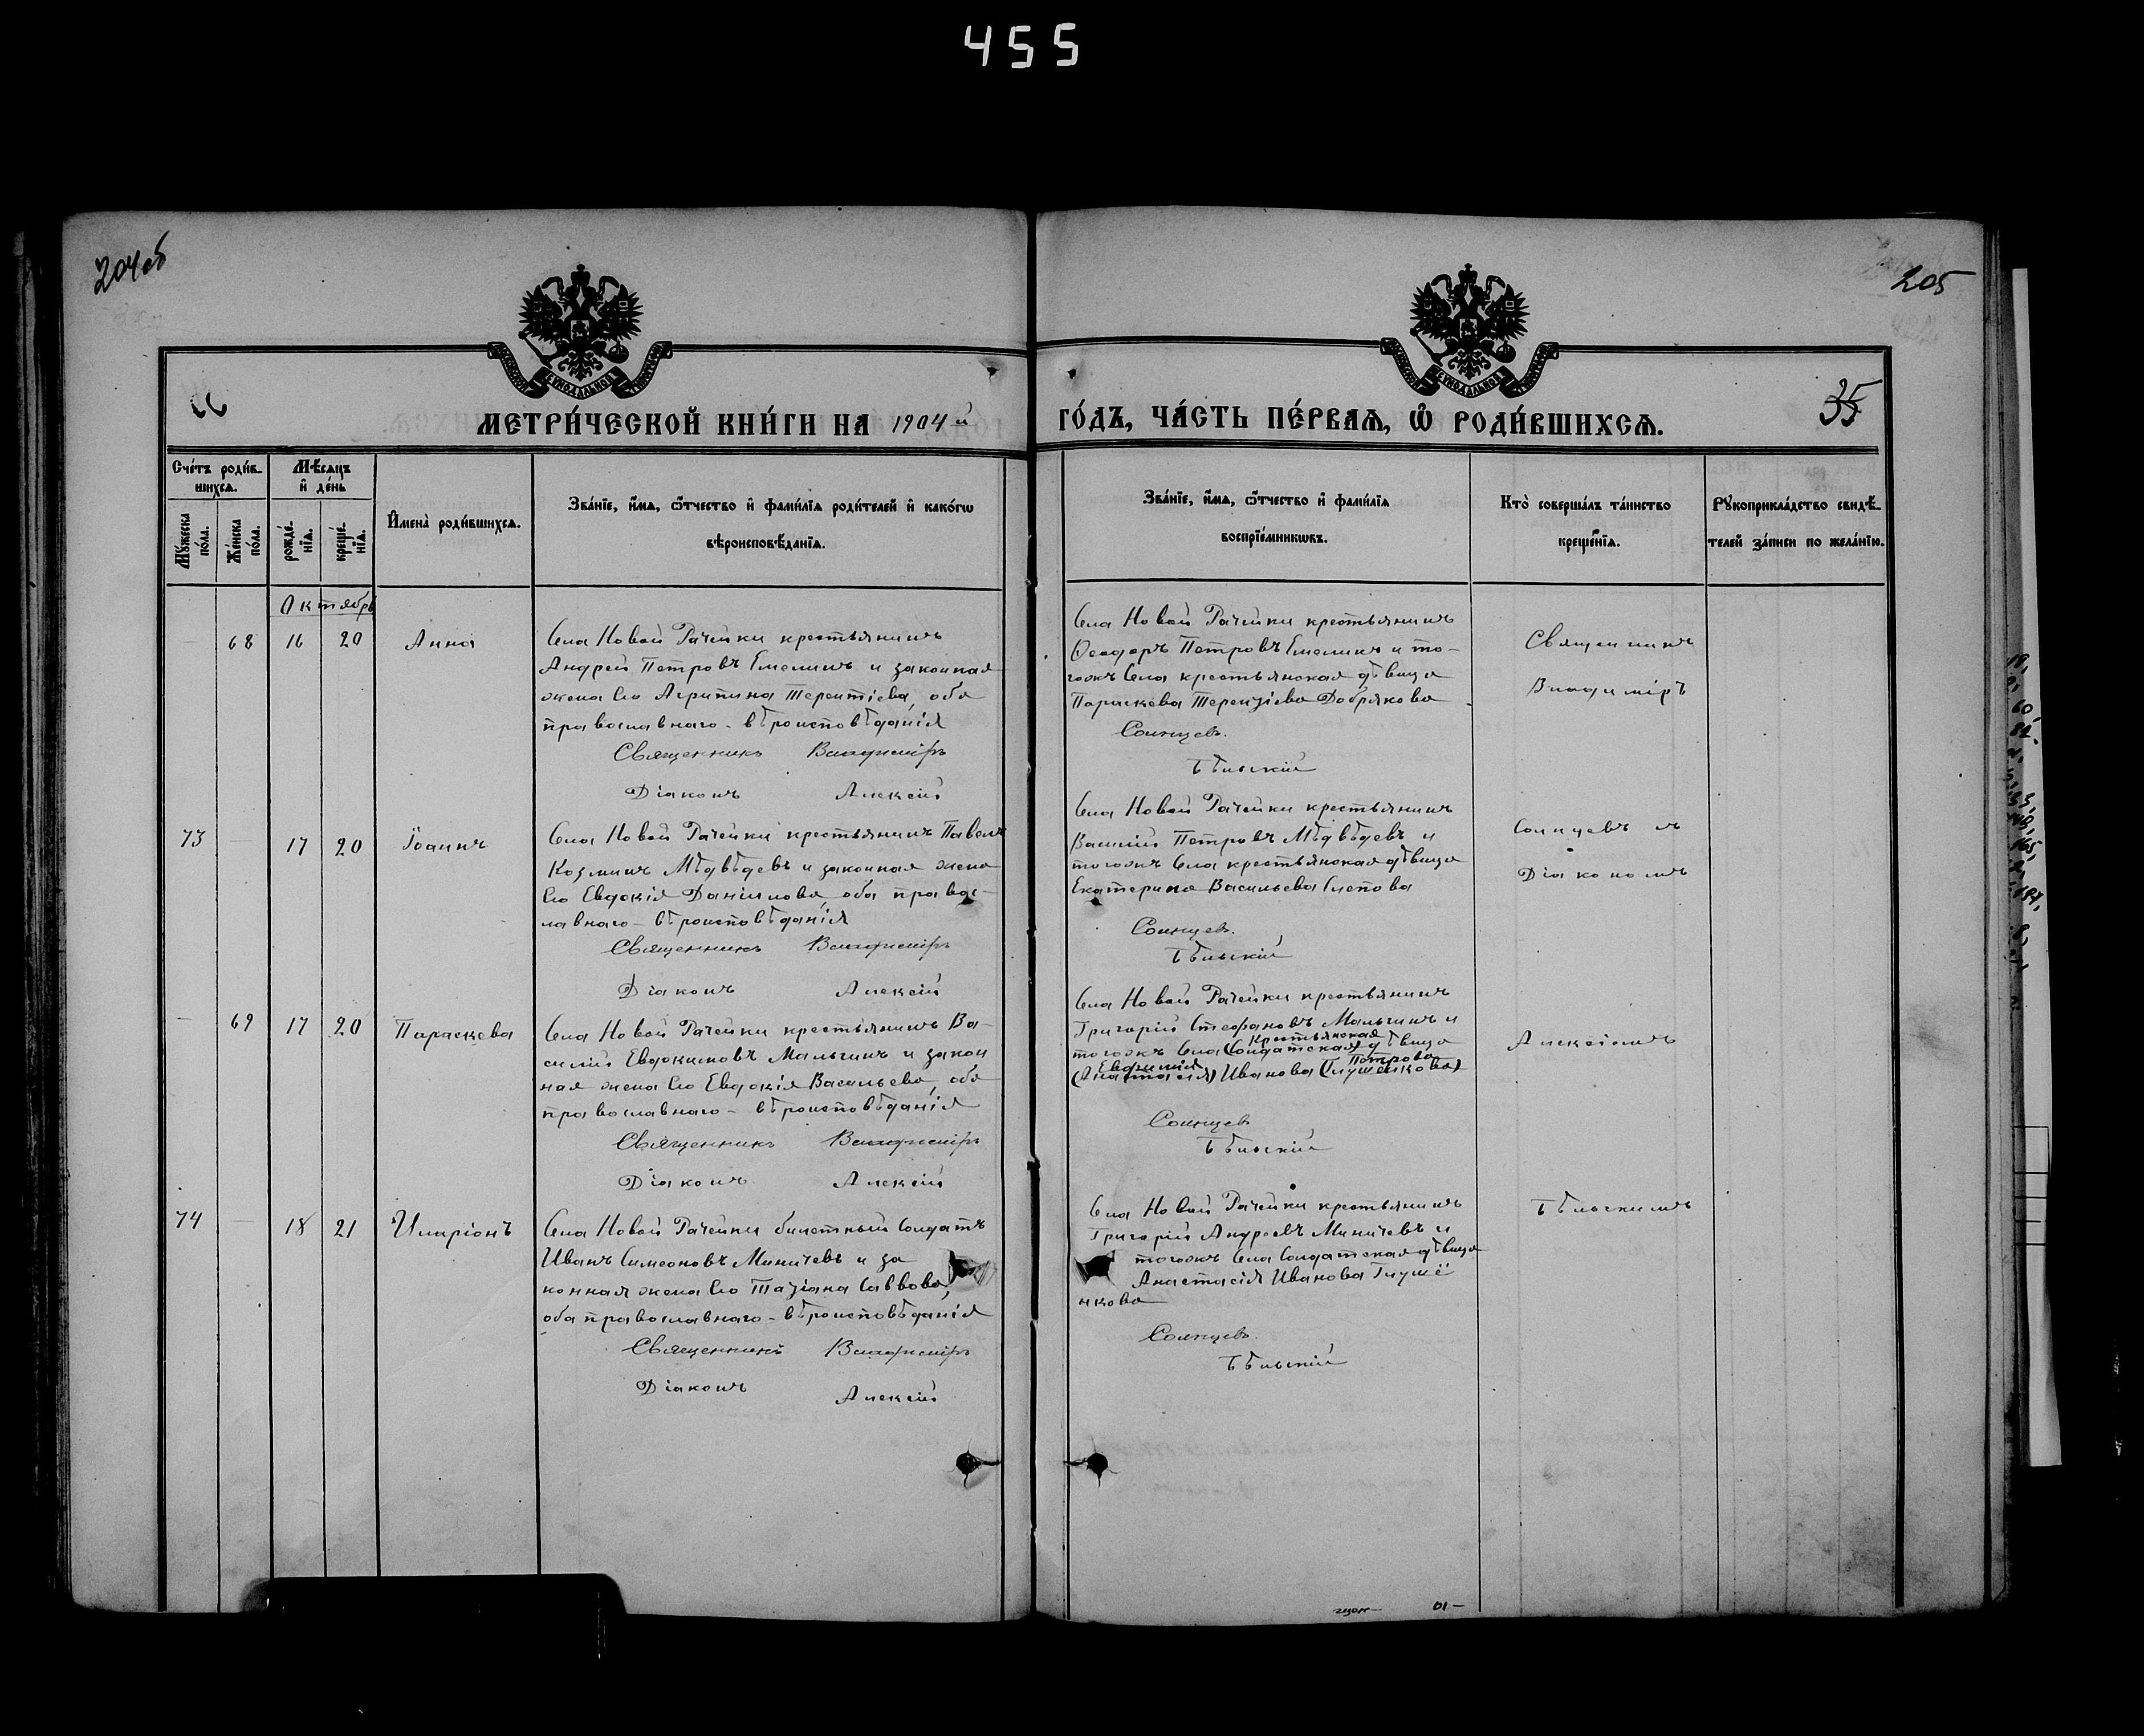 455
204об
205
35
МЕТРИ́ЧЕСКОЙ КНИ́ГИ НА 1904 й
ГО́ДЪ, ЧА́СТЬ ПЕ́РВАѦ, Ѡ҆ РОДИ́ВШИХСѦ.
Сче́тъ роди́в-
шихсѧ.
Мѣ́сѧцъ
и҆ де́нь
Мꙋ́жеска по́ла.
Же́нска по́ла.
рожде́-
нїѧ.
креще́-
нїѧ.
И҆мена̀ роди́вшихсѧ.
Зва́нїе, и҆́мѧ, ѻ҆́тчество и҆ фами́лїѧ роди́телей и҆ како́гѡ
вѣроисповѣ́данїѧ.
Зва́нїе, и҆́мѧ, ѻ҆́тчество и҆ фами́лїѧ
воспрїе́мникѡвъ.
Кто̀ соверша́лъ та́инство
креще́нїѧ.
Рꙋкоприкла́дство свидѣ́-
телей за́писи по жела́нїю.
Октябрь
68 16 20 Анна
Села Новой Рачейки крестьянинъ
Андрей Петровъ Емелинъ и законная
жена его Агрипина Терентіева, оба
православнаго - вѣроисповѣданія
Священникъ Владиміръ
Діаконъ Алексій
Села Новой Рачейки крестьянинъ
Ѳеодоръ Петровъ Емелинъ и то-
гожъ Села крестьянская дѣвица
Параскева Терентіева Добрякова
Солнцевъ.
Бѣльскій
Священникъ
Владиміръ
73 17 20 Іоаннъ
Села Новой Рачейки крестьянинъ Павелъ
Козминъ Мѣдвѣдевъ и законная жена
его Евдокія Даніилова, оба правос-
лавнаго - вѣроисповѣданія
Священникъ Владиміръ
Діаконъ Алексій
Села Новой Рачейки крестьянинъ
Василій Петровъ Мѣдвѣдевъ и
тогожъ Села крестьянская дѣвица
Екатерина Васильева Слепова
Солнцевъ.
Бѣльскій
Солнцевъ съ
Діакономъ
69 17 20 Параскева
Села Новой Рачейки крестьянинъ Ва-
силій Евдокимовъ Малыгинъ и закон
ная жена его Евдокія Васильева, оба
православнаго - вѣроисповѣданія
Священникъ Владиміръ
Діаконъ Алексій
Села Новой Рачейки крестьянинъ
Григорій Стефановъ Малыгинъ и
крестьянская
тогожъ Села (Солдатская) дѣвица
Евфимія Петрова
(Анастасія) Иванова (Глушенкова)
Солнцевъ
Бѣльскій
Алексіемъ
74 18 21 Иларіонъ
Села Новой Рачейки билетный Солдатъ
Иванъ Симеоновъ Миничевъ и за
конная жена его Татіана Саввова,
оба православнаго - вѣроисповѣданія
Священникъ Владиміръ
Діаконъ Алексій
Села Новой Рачейки крестьянинъ
Григорій Андреевъ Миничевъ и
тогожъ Села Солдатская дѣвица
Анастасія Иванова Глуше
нкова
Солнцевъ.
Бѣльскій
Бѣльскимъ